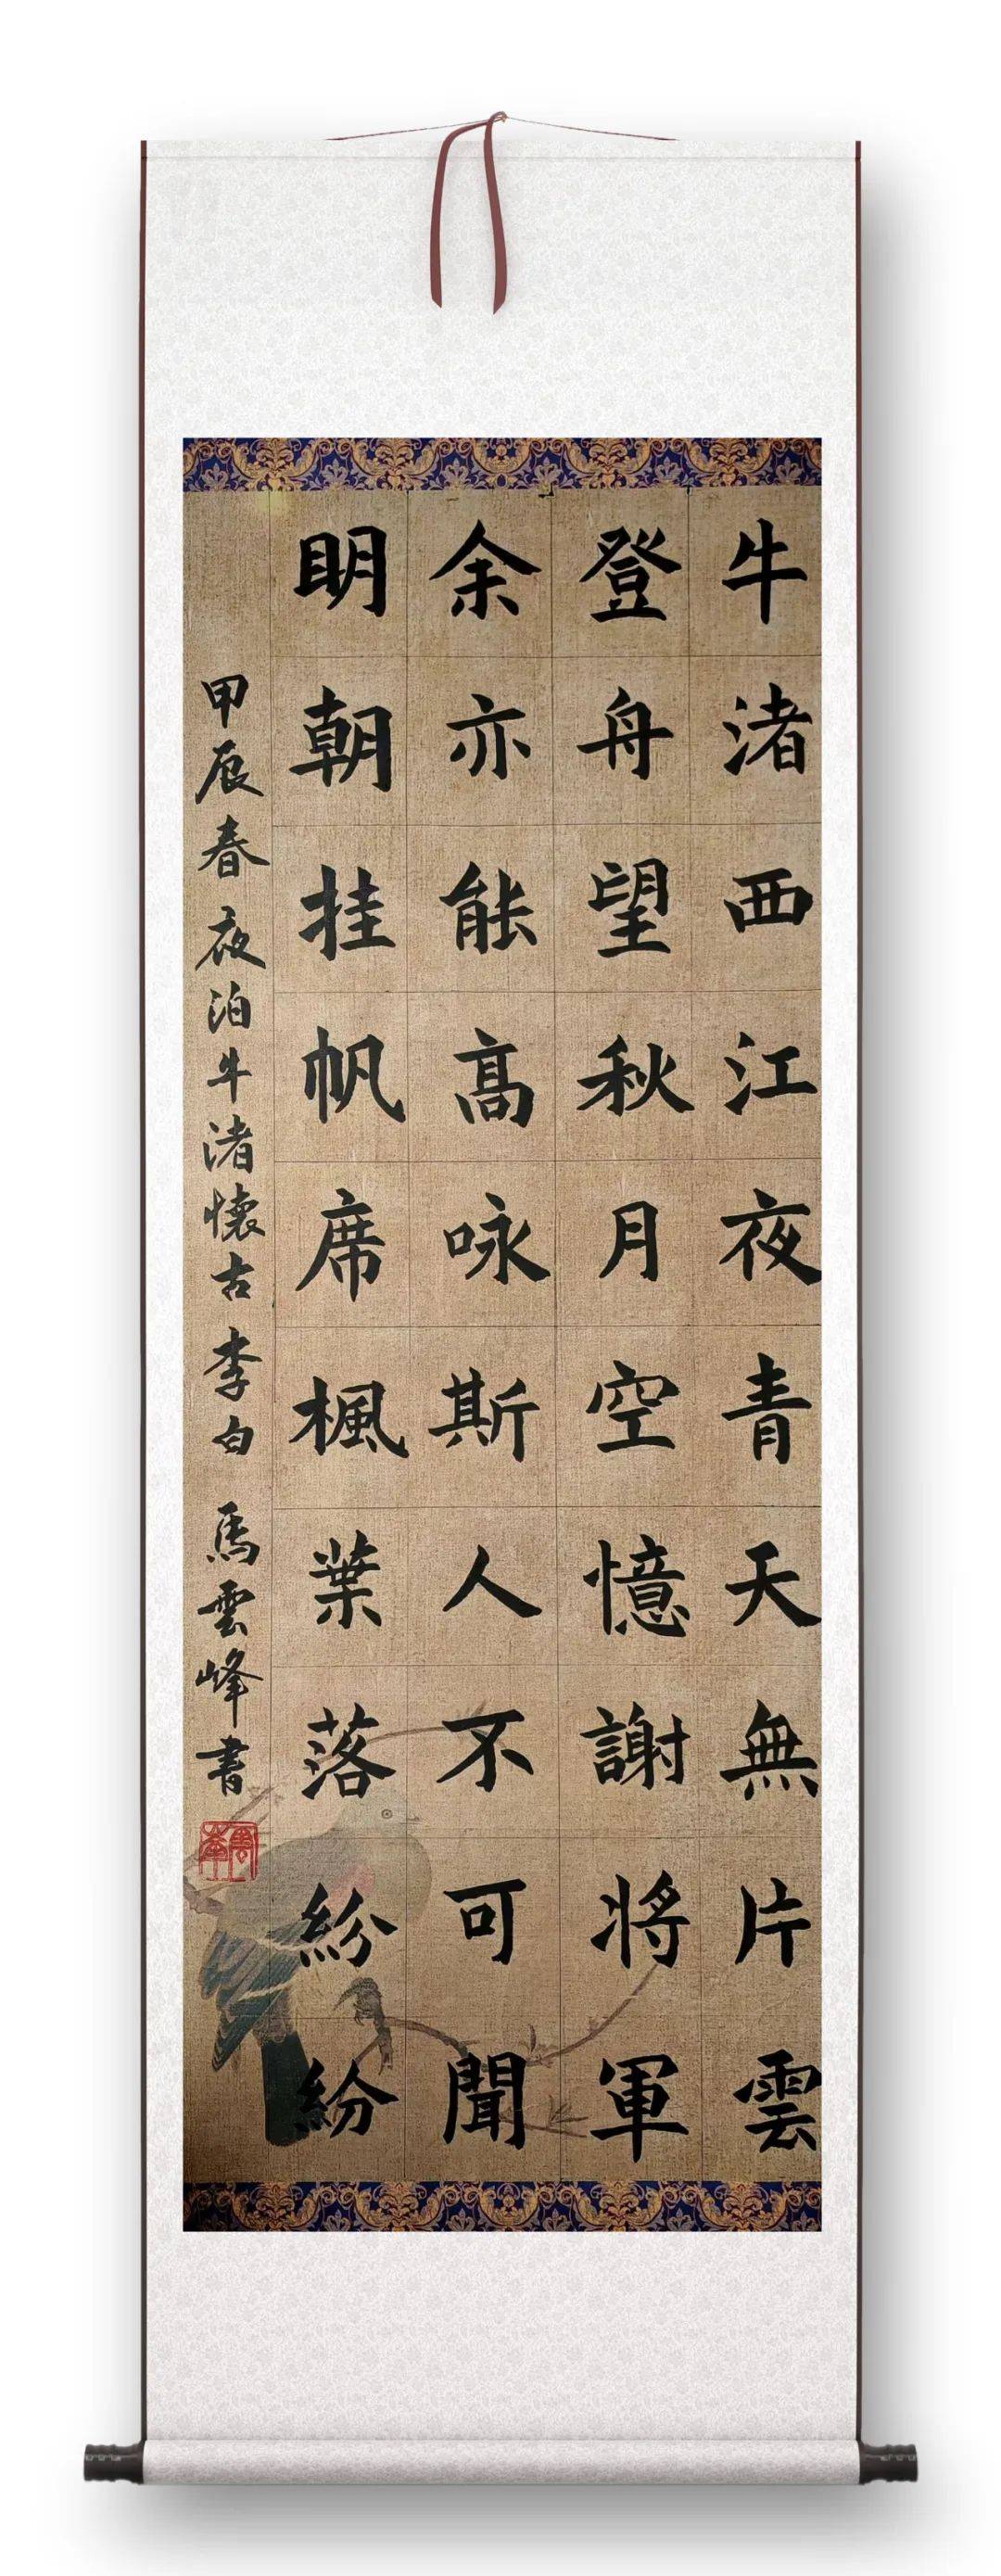 牛渚西江夜青天無片雲
登舟望秋月空憶謝將軍
余亦能高咏斯人不可聞
明朝挂帆席楓葉落紛紛
甲辰春夜泊牛渚懷古李白馬雲峰書
雲峯